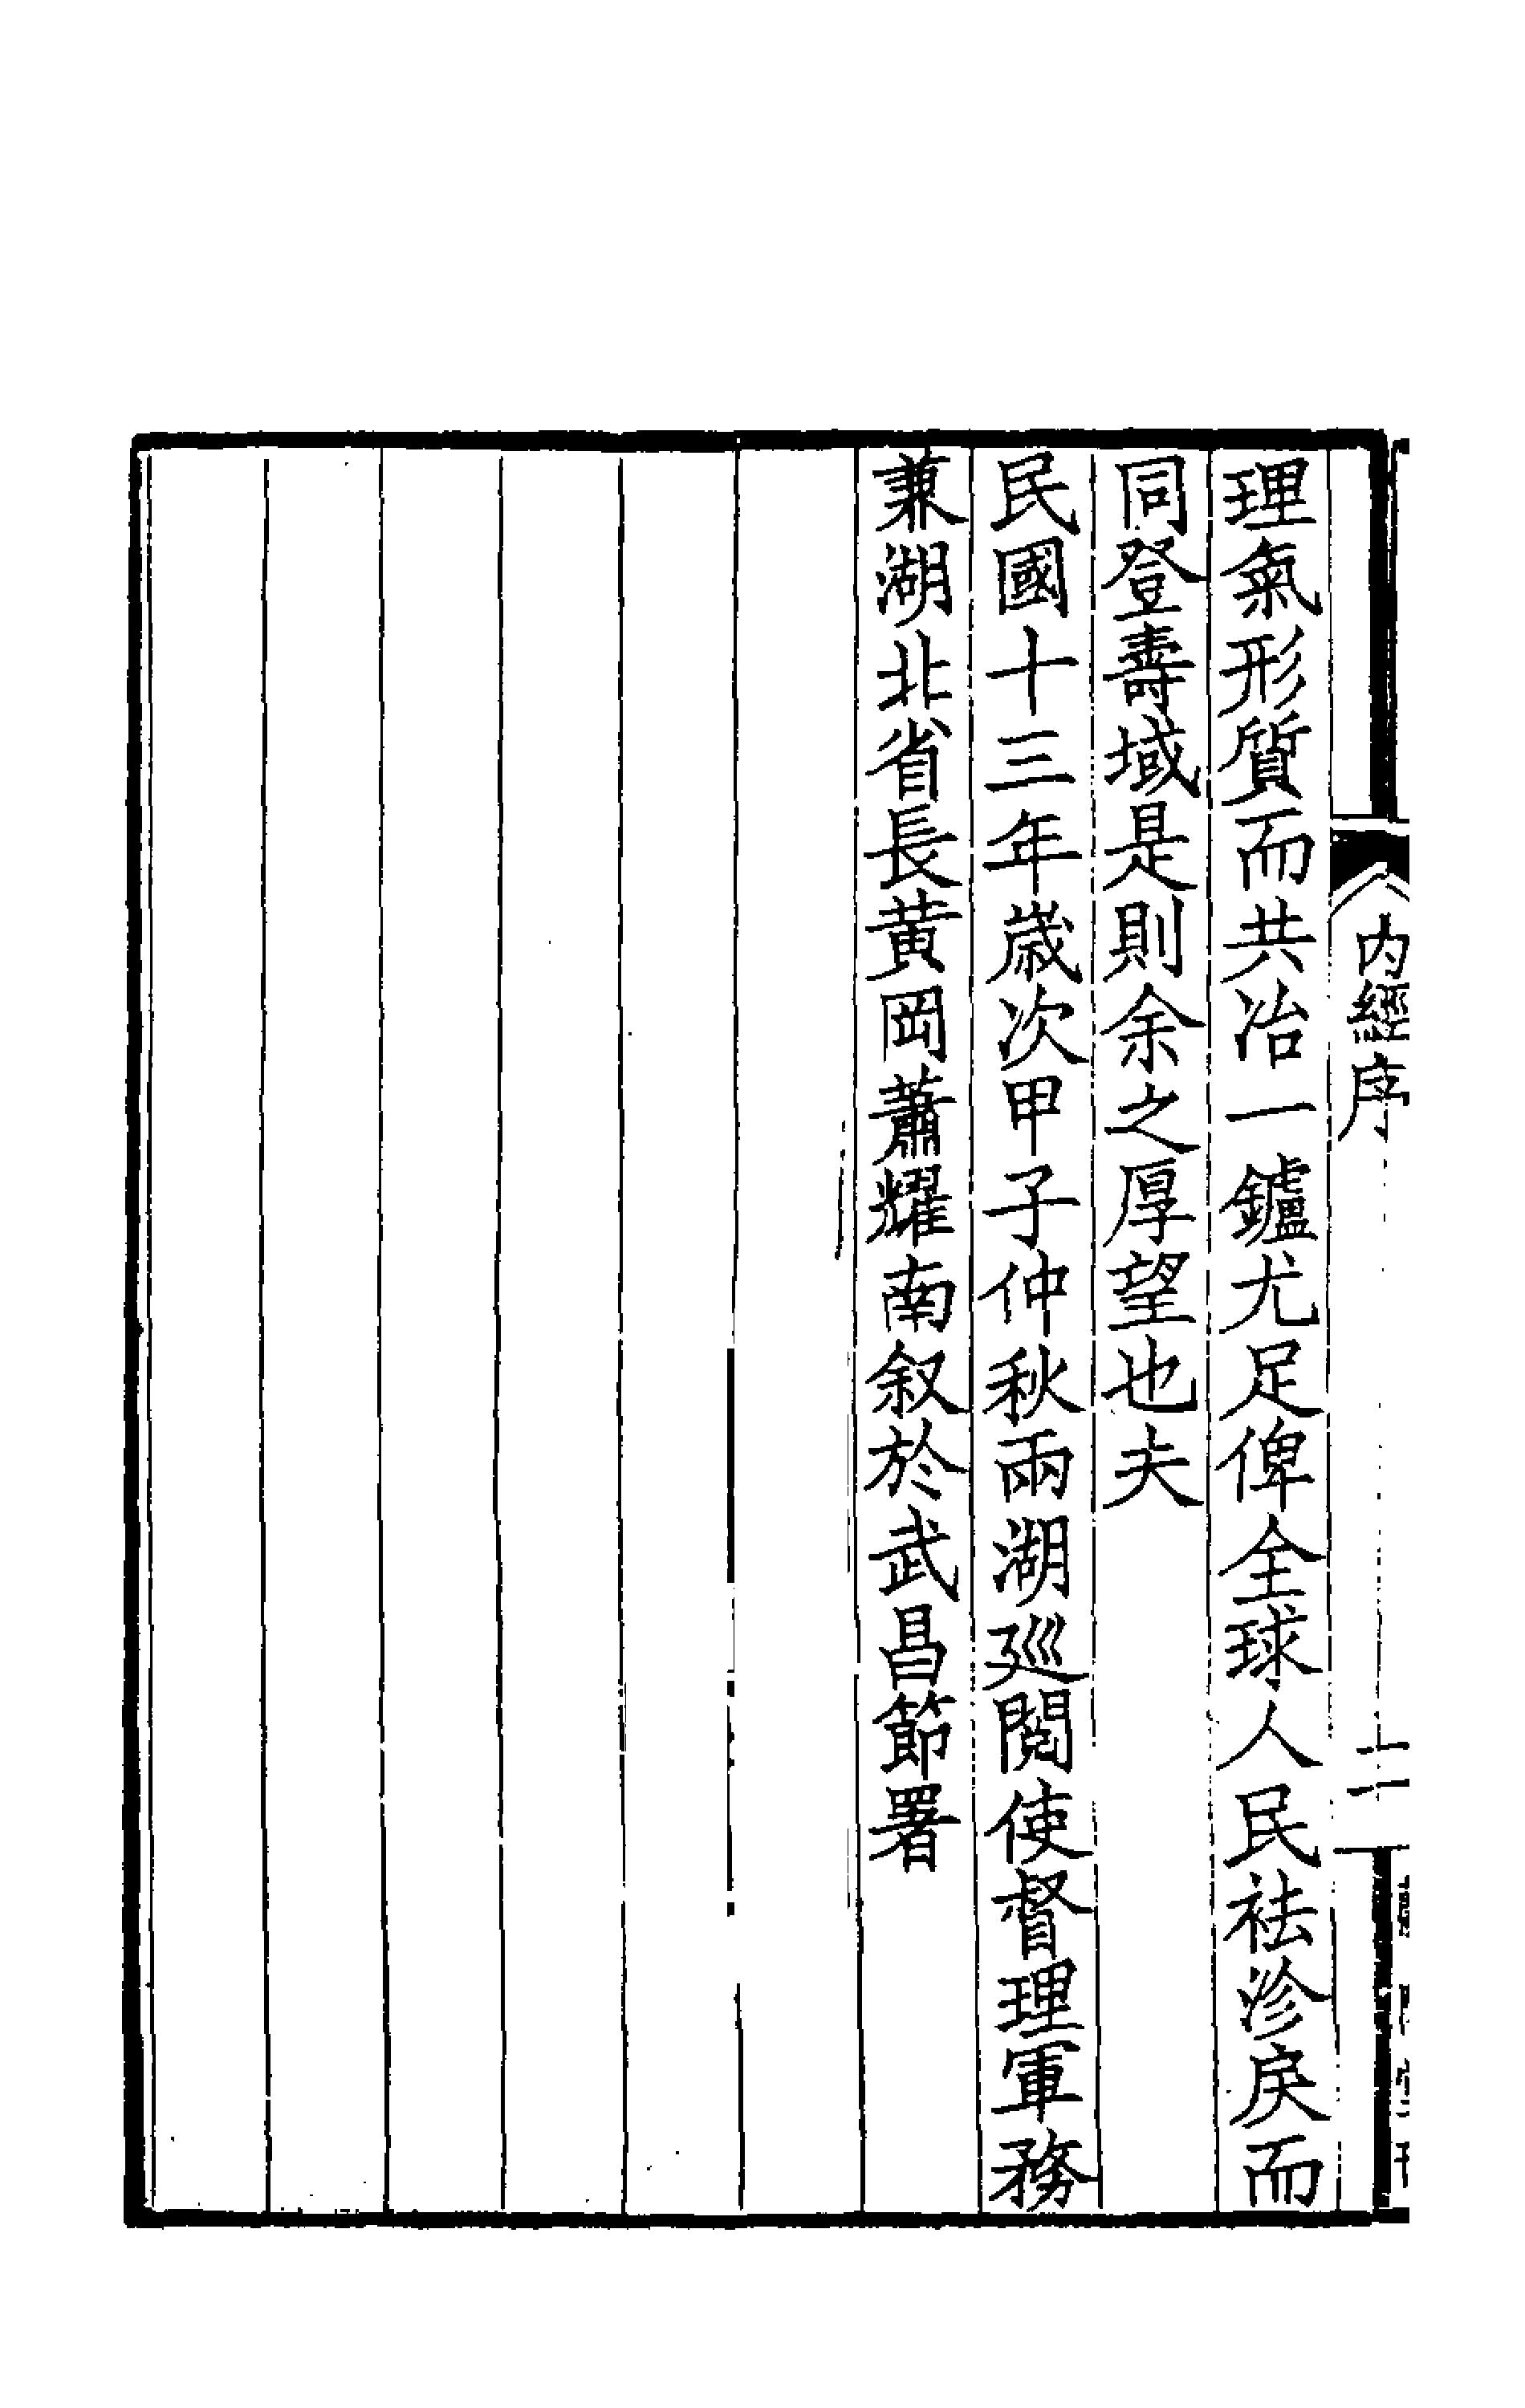 內經序
二
理氣形質而共冶一鑪尤足俾全球人民袪沴戾而
同登壽域是則余之厚望也夫
民國十三年歲次甲子仲秋兩湖廵閱使督理軍務
兼湖北省長黃岡蕭耀南叙於武昌節署